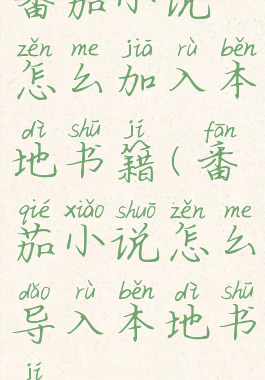 番茄小说
zěn me jiā rù běn
怎么加入本
dì shū jí fān
地书籍(番
qié xiǎo shuō zěn me
茄小说怎么
dǎo rù běn dì shū
导入本地书
jí